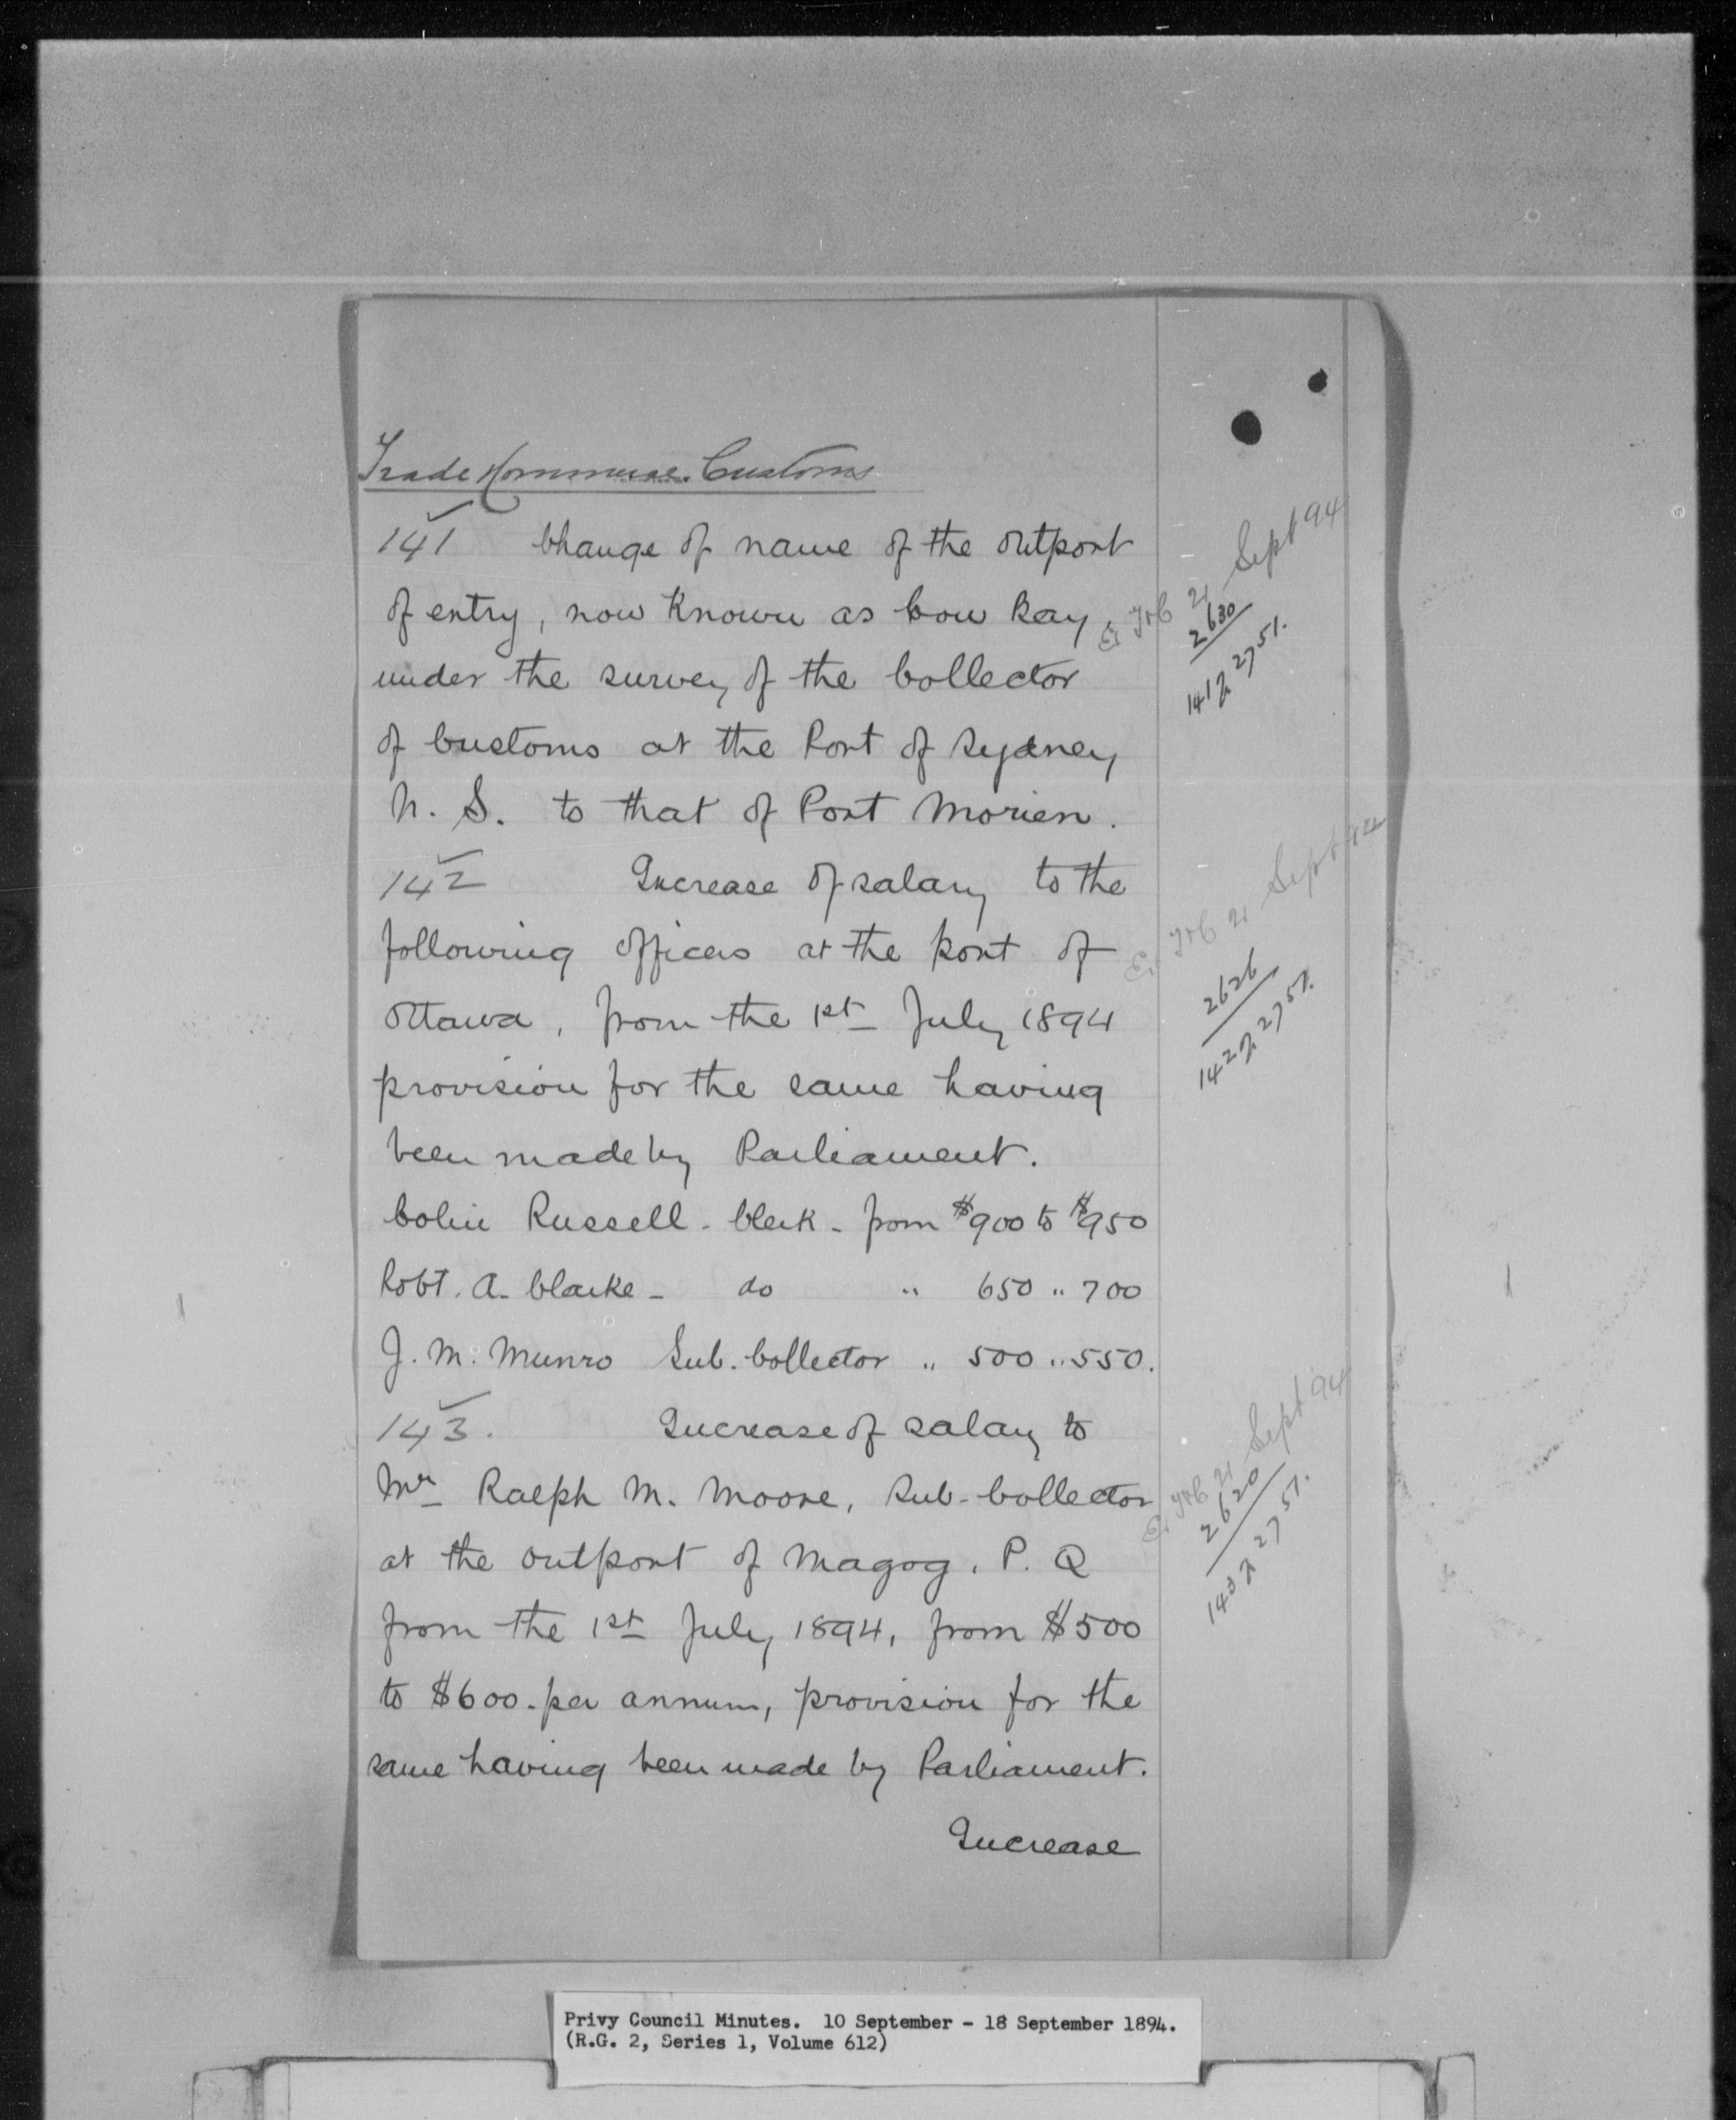 Trade & Commerce. Customs
141 Change of name of the outport
of entry, now known as Cow Bay,
under the survey of the Collector
of Customs at the Port of Sydney
N. S. to that of Port Morien.
142 Increase of salary to the
following officers at the Port of
Ottawa, from the 1st July 1894
provision for the same having
been made by Parliament.
Colin Russell - Clerk - from $900 to $950
Robt. A. Clarke - do " 650 " 700
J. M. Munro Sub. Collector " 500 " 550.
143. Increase of salary to
Mr Ralph M. Moore, Sub-Collector
at the outport of Magog, P. Q
from the 1st July 1894, from $500
to $600. per annum, provision for the
same having been made by Parliament.
Increase
21 Sept 94
2630
141 2751.
21 Sept 94
2626
142 2751.
21 Sept 94
2620
143 2751.
Privy Council Minutes. 10 September - 18 September 1894.
(R.G. 2, Series 1, Volume 612)